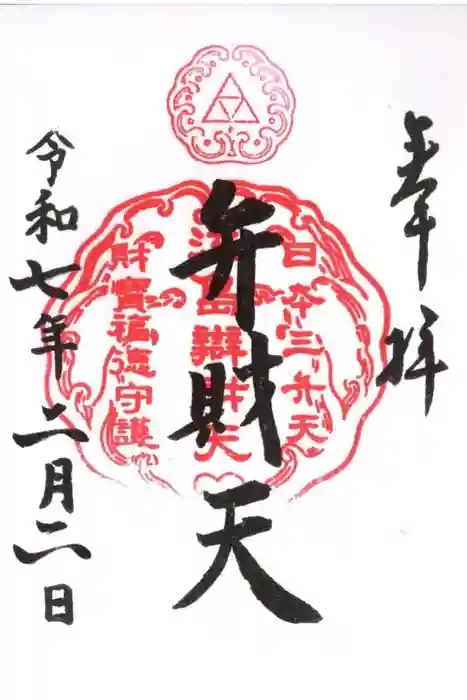 奉拝
日本三弁天
弁財天
江島辯財天
財寶福徳守護
令和七年二月二日